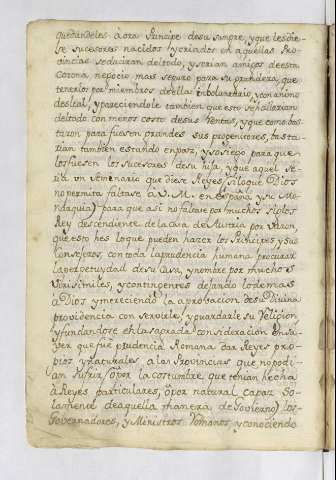 quedandoles àora Principe de su sangre, y que les die-
se sucesores nacidos, y criados en aquellas Pro-
vincias se ducirian del todo, y serian amigos de esta
Corona, negocio mas seguro para su grandeza, que
tenerlos por miembros de ella en
desleal, y pareciendole tambien que esto se
del todo con menos costo de sus Rentas, y que como bas-
taron para fuesen grandes sus progenitores, basta-
rian tambien estando en paz, y sosiego para que
lo fuesen los sucesores de su hija y que aquel se-
ria un seminario que diese Reyes, si lo que Dios
no permita faltase à V.M. en España, y su Mo-
narquia) para que asi no faltase por muchos siglos
Rey descendiente de la casa de Austria por Varon,
que esto hes lo que pueden hazer los Principes, y sus
Consejeros, con toda la prudencia humana procurar
la perpetuydad de su Casa, y nombre por muchos
Verisimiles, y contingentes dejando lo demas
à Dios y mereciendo la aprobacion de su Divina
providencia con servirle, y guardarle su Religion
y fundandose en la sagrada consideracion en sa-
ver que fue prudencia Romana dar Reyes pro-
pios y naturales, a las Provincias que no podi-
an sufrir (ò por la costumbre que tenian hecha
à Reyes particulares, ò por natural capaz So-
lamente de aquella manera de Govierno) los
Governadores, y Ministros Romanos y conociendo